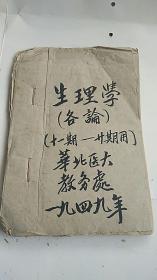 生理學
(各論)
(十一期一廿期用)
華北医大
教务處
一九四九年